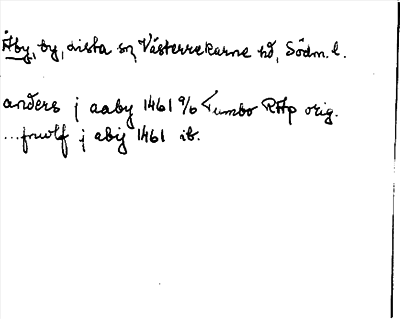 Åby, by, Lista sn, Västerrekarne hd, Södm. l.
anders j aaby 1461 9/6 Tumbo RAp orig.
...frwlf j abij 1461 ib.